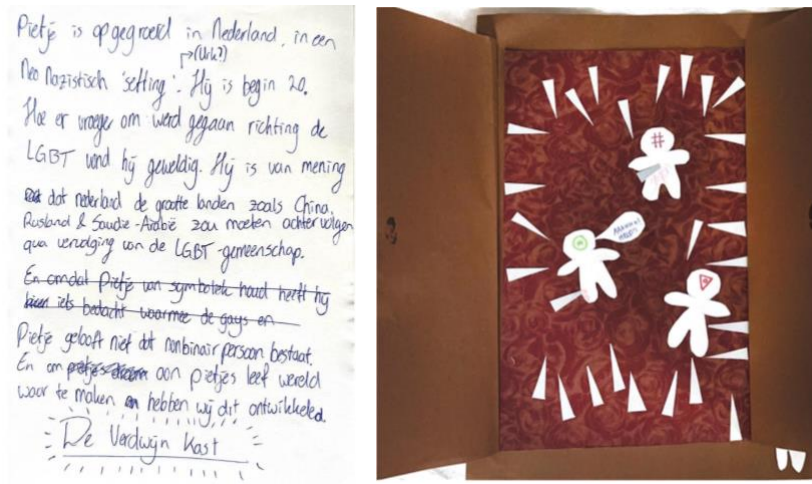 Pietje is opgegroeid in Nederland, in een
(Urk?)
Neo Nazistisch 'setting'. Hij is begin 20.
Hoe er vroeger om werd gegaan richting de
LGBT vind hij geweldig. Hij is van mening
dat nederland de grootte landen zoals China,
Rusland & Saudie-Arabië zou moeten achtervolgen
qua vervolging van de LGBT-gemeenschap.
En omdat Pietje van symboliek houd heeft hij
iets bedacht waarmee de gays en
Pietje gelooft niet dat nonbinair persoon bestaat.
En om aan pietjes leef wereld
waar te maken hebben wij dit ontwikkeled.
De Verdwijn Kast
#